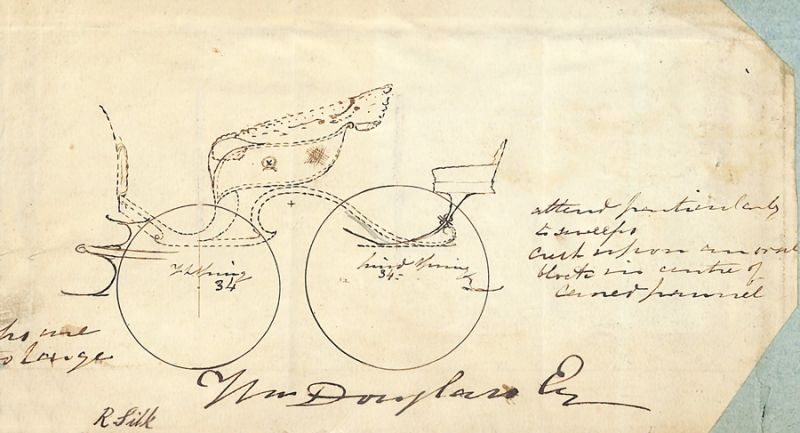 attend particularly
to sweeps
crest upon an oval
block in centre of
caned pannel
Spring
34
hind Spring
34
to large
Wm Douglass Esq
R Silk